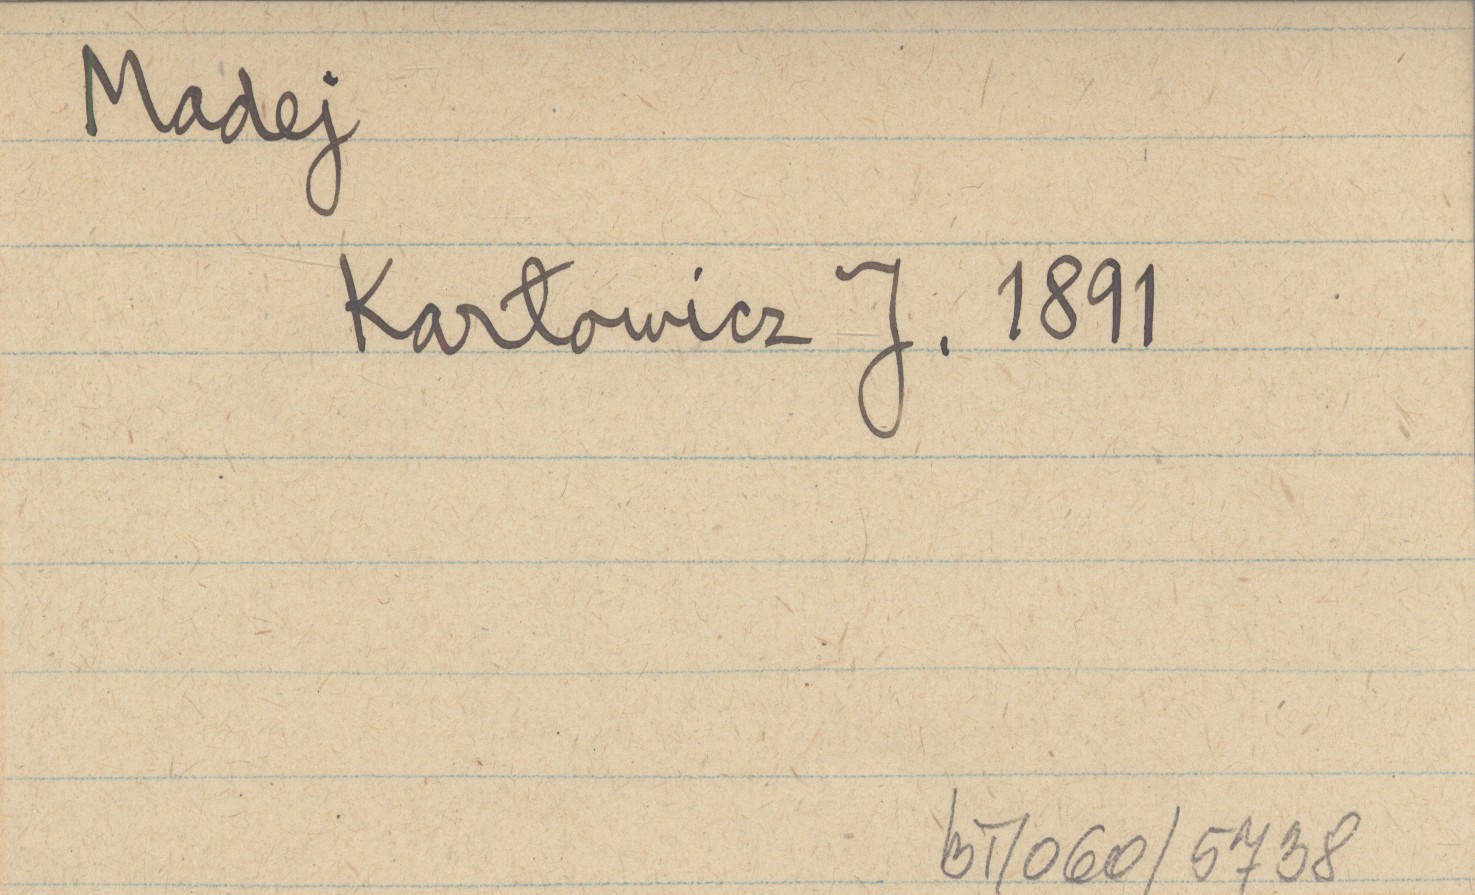 Madej
Karłowicz J. 1891
bT/060/5738